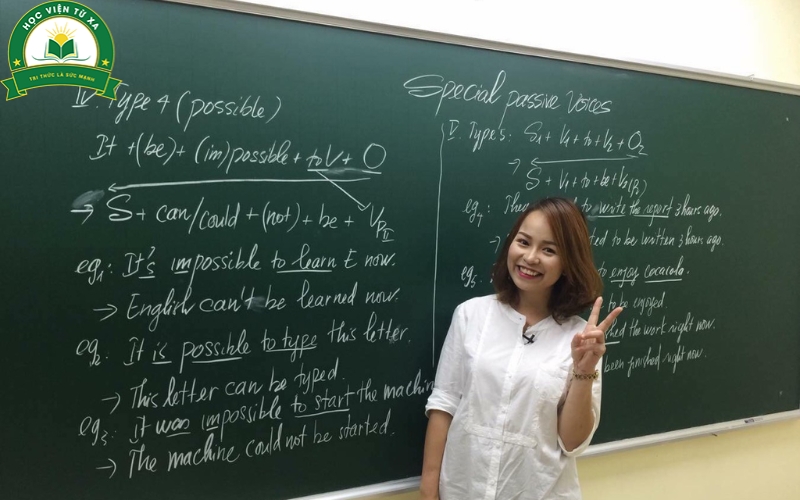 HỌC VIỆN TỪ XA
TRI THỨC LÀ SỨC MẠNH
IV. Type 4 (possible)
It + (be) + (im)possible + to V + O
→ S + can/could + (not) + be + VpII
eg1: It's impossible to learn E now.
→ English can't be learned now.
eg2: It is possible to type this letter.
→ This letter can be typed.
eg3: It was impossible to start the machine
→ The machine could not be started.
Special passive Voices
V. Type 5: S1 + V1 + to + V2 + O2
→ S + V1 + to + be + V3 (P2)
eg4: to write the report 3 hours ago.
→ to be written 3 hours ago.
eg5: to enjoy cocacola.
to be enjoyed.
the work right now.
been finished right now.